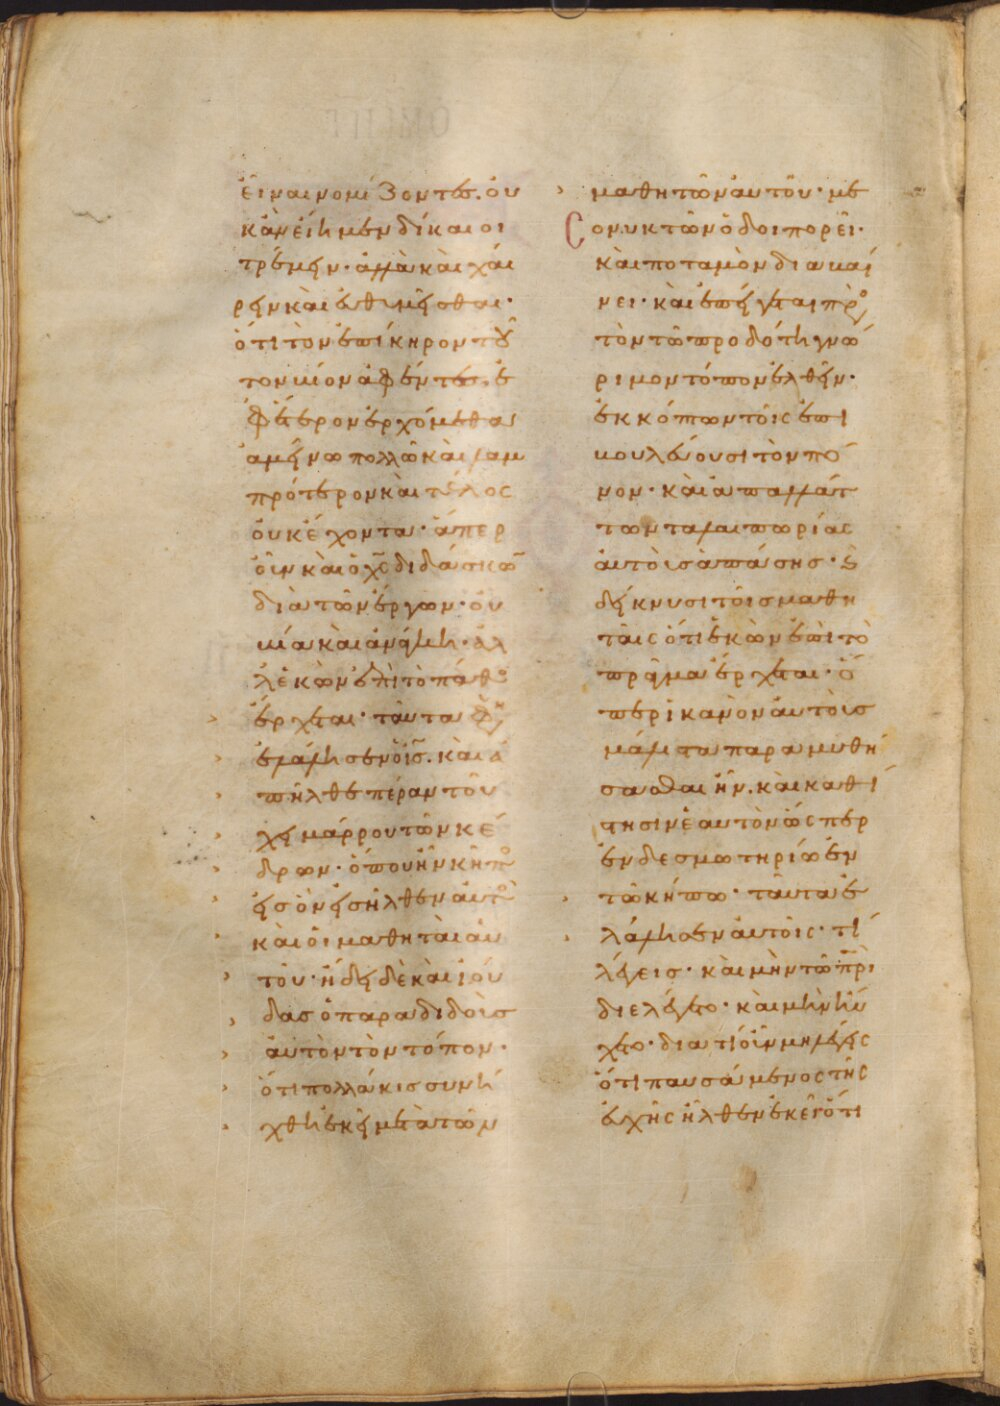 εἶναι νομίζοντες. οὐ
κἂν εἴη μὲν δίκαιοι
τρέμειν· ἀλλὰ καὶ χαί
ρειν καὶ εὐθυμεῖσθαι·
ὅτι τὸν ἐπίκηρον τοῦ
τον βίον ἀφέντες. ἐ
φ' ἕτερον ἐρχόμεθα
ἀμείνω πολλῶ καὶ λαμ
πρότερον καὶ τέλος
οὐκ ἔχοντα· ἅπερ
οὖν καὶ ὁ χς διδάσκων
διὰ τῶν ἔργων· οὐ
βία καὶ ἀνάγκη· ἀλ
λ' ἑκὼν ἐπὶ τὸ πάθος
ἔρχεται· ταῦτα φησὶν
ἐλάλησεν ὁ ις. καὶ ἀ
πῆλθε πέραν τοῦ
χειμάρρου τῶν κέ
δρων· ὅπου ἦν κῆπος
εἰς ὃν εἰσῆλθεν αὐτὸς
καὶ οἱ μαθηταὶ αὐ
τοῦ· ἤδει δὲ καὶ ἰού
δας ὁ παραδιδοὺς
αὐτὸν τὸν τόπον·
ὅτι πολλάκις συνή
χθη ἐκεῖ μετὰ τῶν
μαθητῶν αὐτοῦ· με
σονυκτῶν ὁδοιπορεῖ·
καὶ ποταμὸν διαβαί
νει· καὶ ἐπείγεται πρὸς
τὸν τῶ προδότη γνώ
ριμον τόπον ἐλθεῖν·
ἐκκόπτων τοῖς ἐπι
βουλεύουσι τὸν πό
νον· καὶ ἀπαλλάτ
των ταλαιπωρίας
αὐτοὺς ἁπάσης· καὶ
δείκνυσι τοῖς μαθη
ταῖς ὅτι ἑκὼν ἐπὶ τὸ
πρᾶγμα ἔρχεται· ὅ
περ ἱκανὸν αὐτοὺς
μάλιστα παραμυθή
σασθαι ἦν. καὶ καθί
στησιν ἑαυτὸν ὥσπερ
ἐν δεσμωτηρίω ἐν
τῶ κήπω· ταῦτα ἐ
λάλησεν αὐτοῖς· τί
λέγεις· καὶ μὴν τῶ πρι
διελέγετο· καὶ μὴν ηὔ
χετο· διατί οὖν μὴ λέγεις
ὅτι παυσάμενος τῆς
εὐχῆς ἦλθεν ἐκεῖ· ὅτι